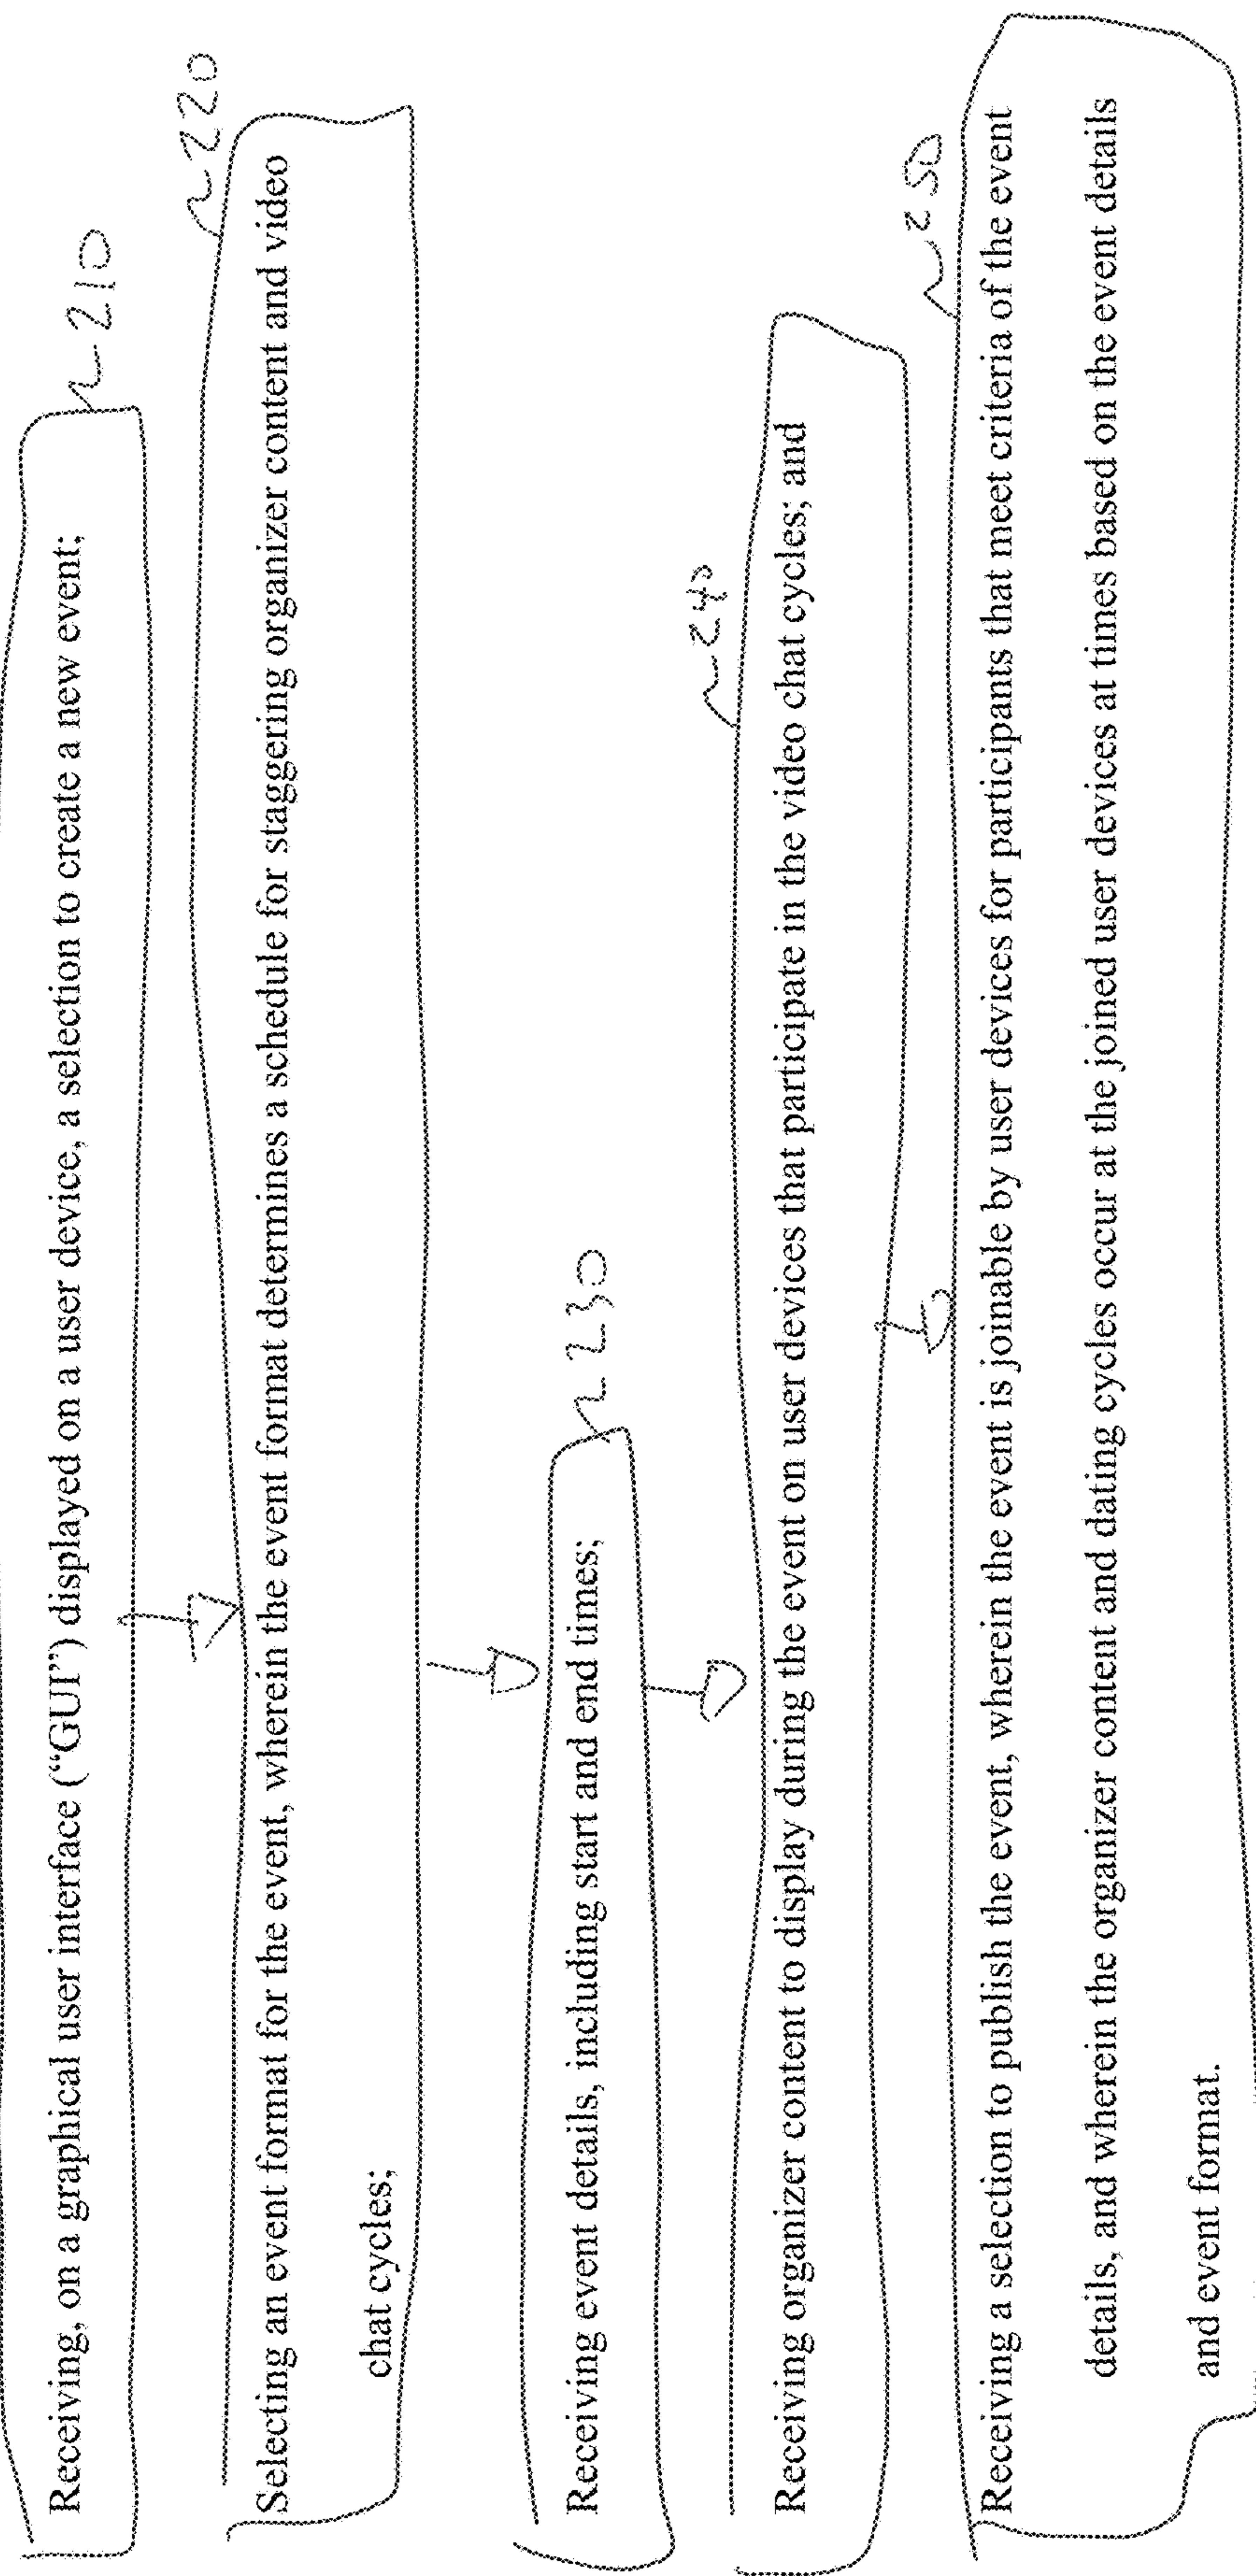 Receiving, on a graphical user interface (“GUI”) displayed on a user device, a selection to create a new event;
210
Selecting an event format for the event, wherein the event format determines a schedule for staggering organizer content and video
chat cycles;
220
Receiving event details, including start and end times;
230
Receiving organizer content to display during the event on user devices that participate in the video chat cycles; and
240
Receiving a selection to publish the event, wherein the event is joinable by user devices for participants that meet criteria of the event
details, and wherein the organizer content and dating cycles occur at the joined user devices at times based on the event details
and event format.
250